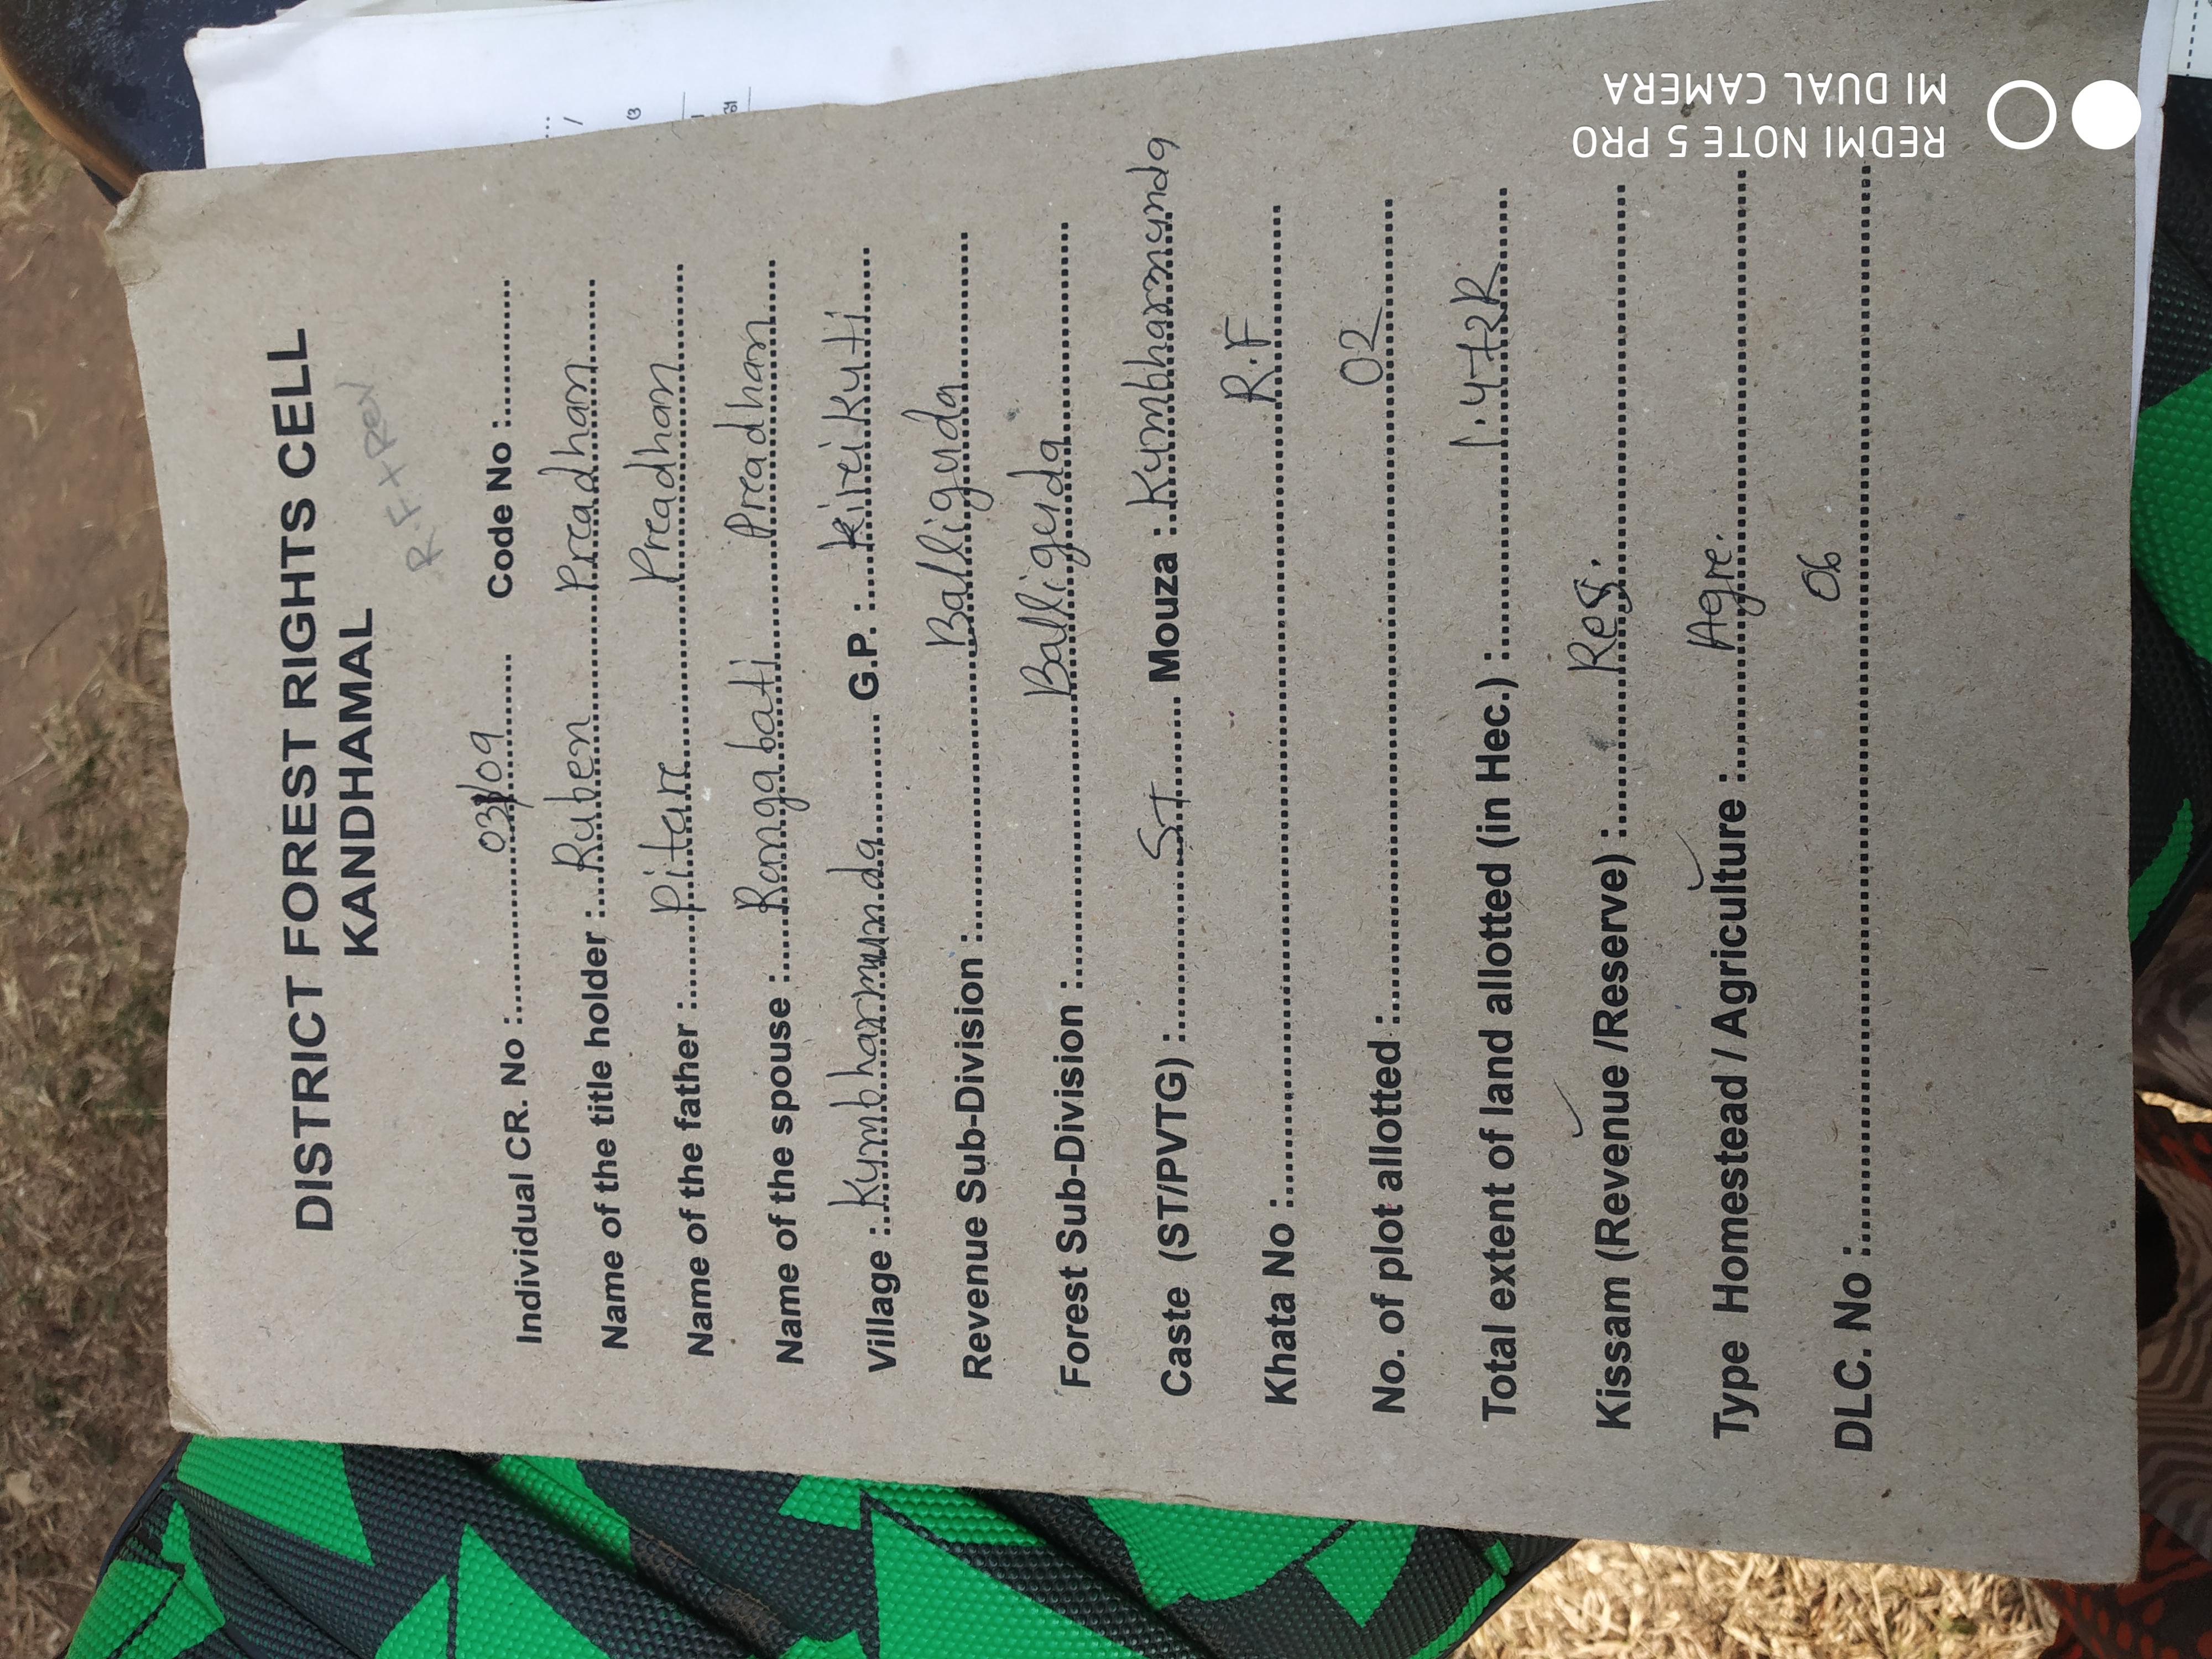 DISTRICT FOREST RIGHTS CELL
KANDHAMAL
R.F + Rev
Individual CR. No :..........03/09.......... Code No :..........
Name of the title holder :....Ruben....Pradhan....
Name of the father :....Pitarr....Preadhan....
Name of the spouse :....Rangabati....Preadhan....
Village :..Kumbharmunda.... G.P. :....kireikuti....
Revenue Sub-Division :..........Balliguda..........
Forest Sub-Division :..........Balliguda..........
Caste (ST/PVTG) :..........ST.......... Mouza :..Kumbharmunda
Khata No :..........R.F..........
No. of plot allotted :..........02..........
Total extent of land allotted (in Hec.) :..........
Kissam (Revenue /Reserve) :..........Res...........
Type Homestead / Agriculture :..........Agre...........
DLC. No :..........06..........
REDMI NOTE 5 PRO
MI DUAL CAMERA